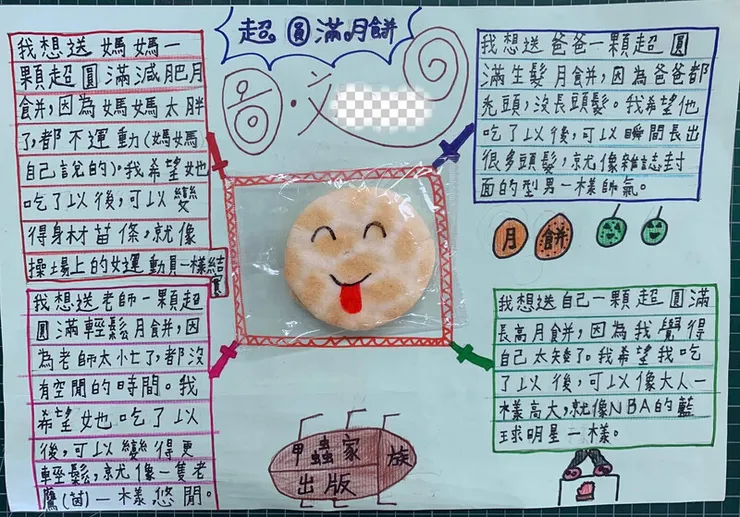 超圓滿月餅
圖・文
我想送媽媽一
顆超圓滿減肥月
餅，因為媽媽太胖
了，都不運動(媽媽
自己說的)。我希望她
吃了以後，可以變
得身材苗條，就像
操場上的女運動員一樣結
實
我想送爸爸一顆超圓
滿生髮月餅，因為爸爸都
禿頭，沒長頭髮。我希望他
吃了以後，可以瞬間長出
很多頭髮，就像雜誌封
面的型男一樣帥氣。
月 餅
我想送老師一顆超
圓滿輕鬆月餅，因
為老師太忙了，都沒
有空閒的時間。我
希望她吃了以
後，可以變得更
輕鬆，就像一隻老
鷹(茵)一樣悠閒。
我想送自己一顆超圓滿
長高月餅，因為我覺得
自己太矮了。我希望我吃
了以後，可以像大人一
樣高大，就像NBA的籃
球明星一樣。
甲蟲家族
出版